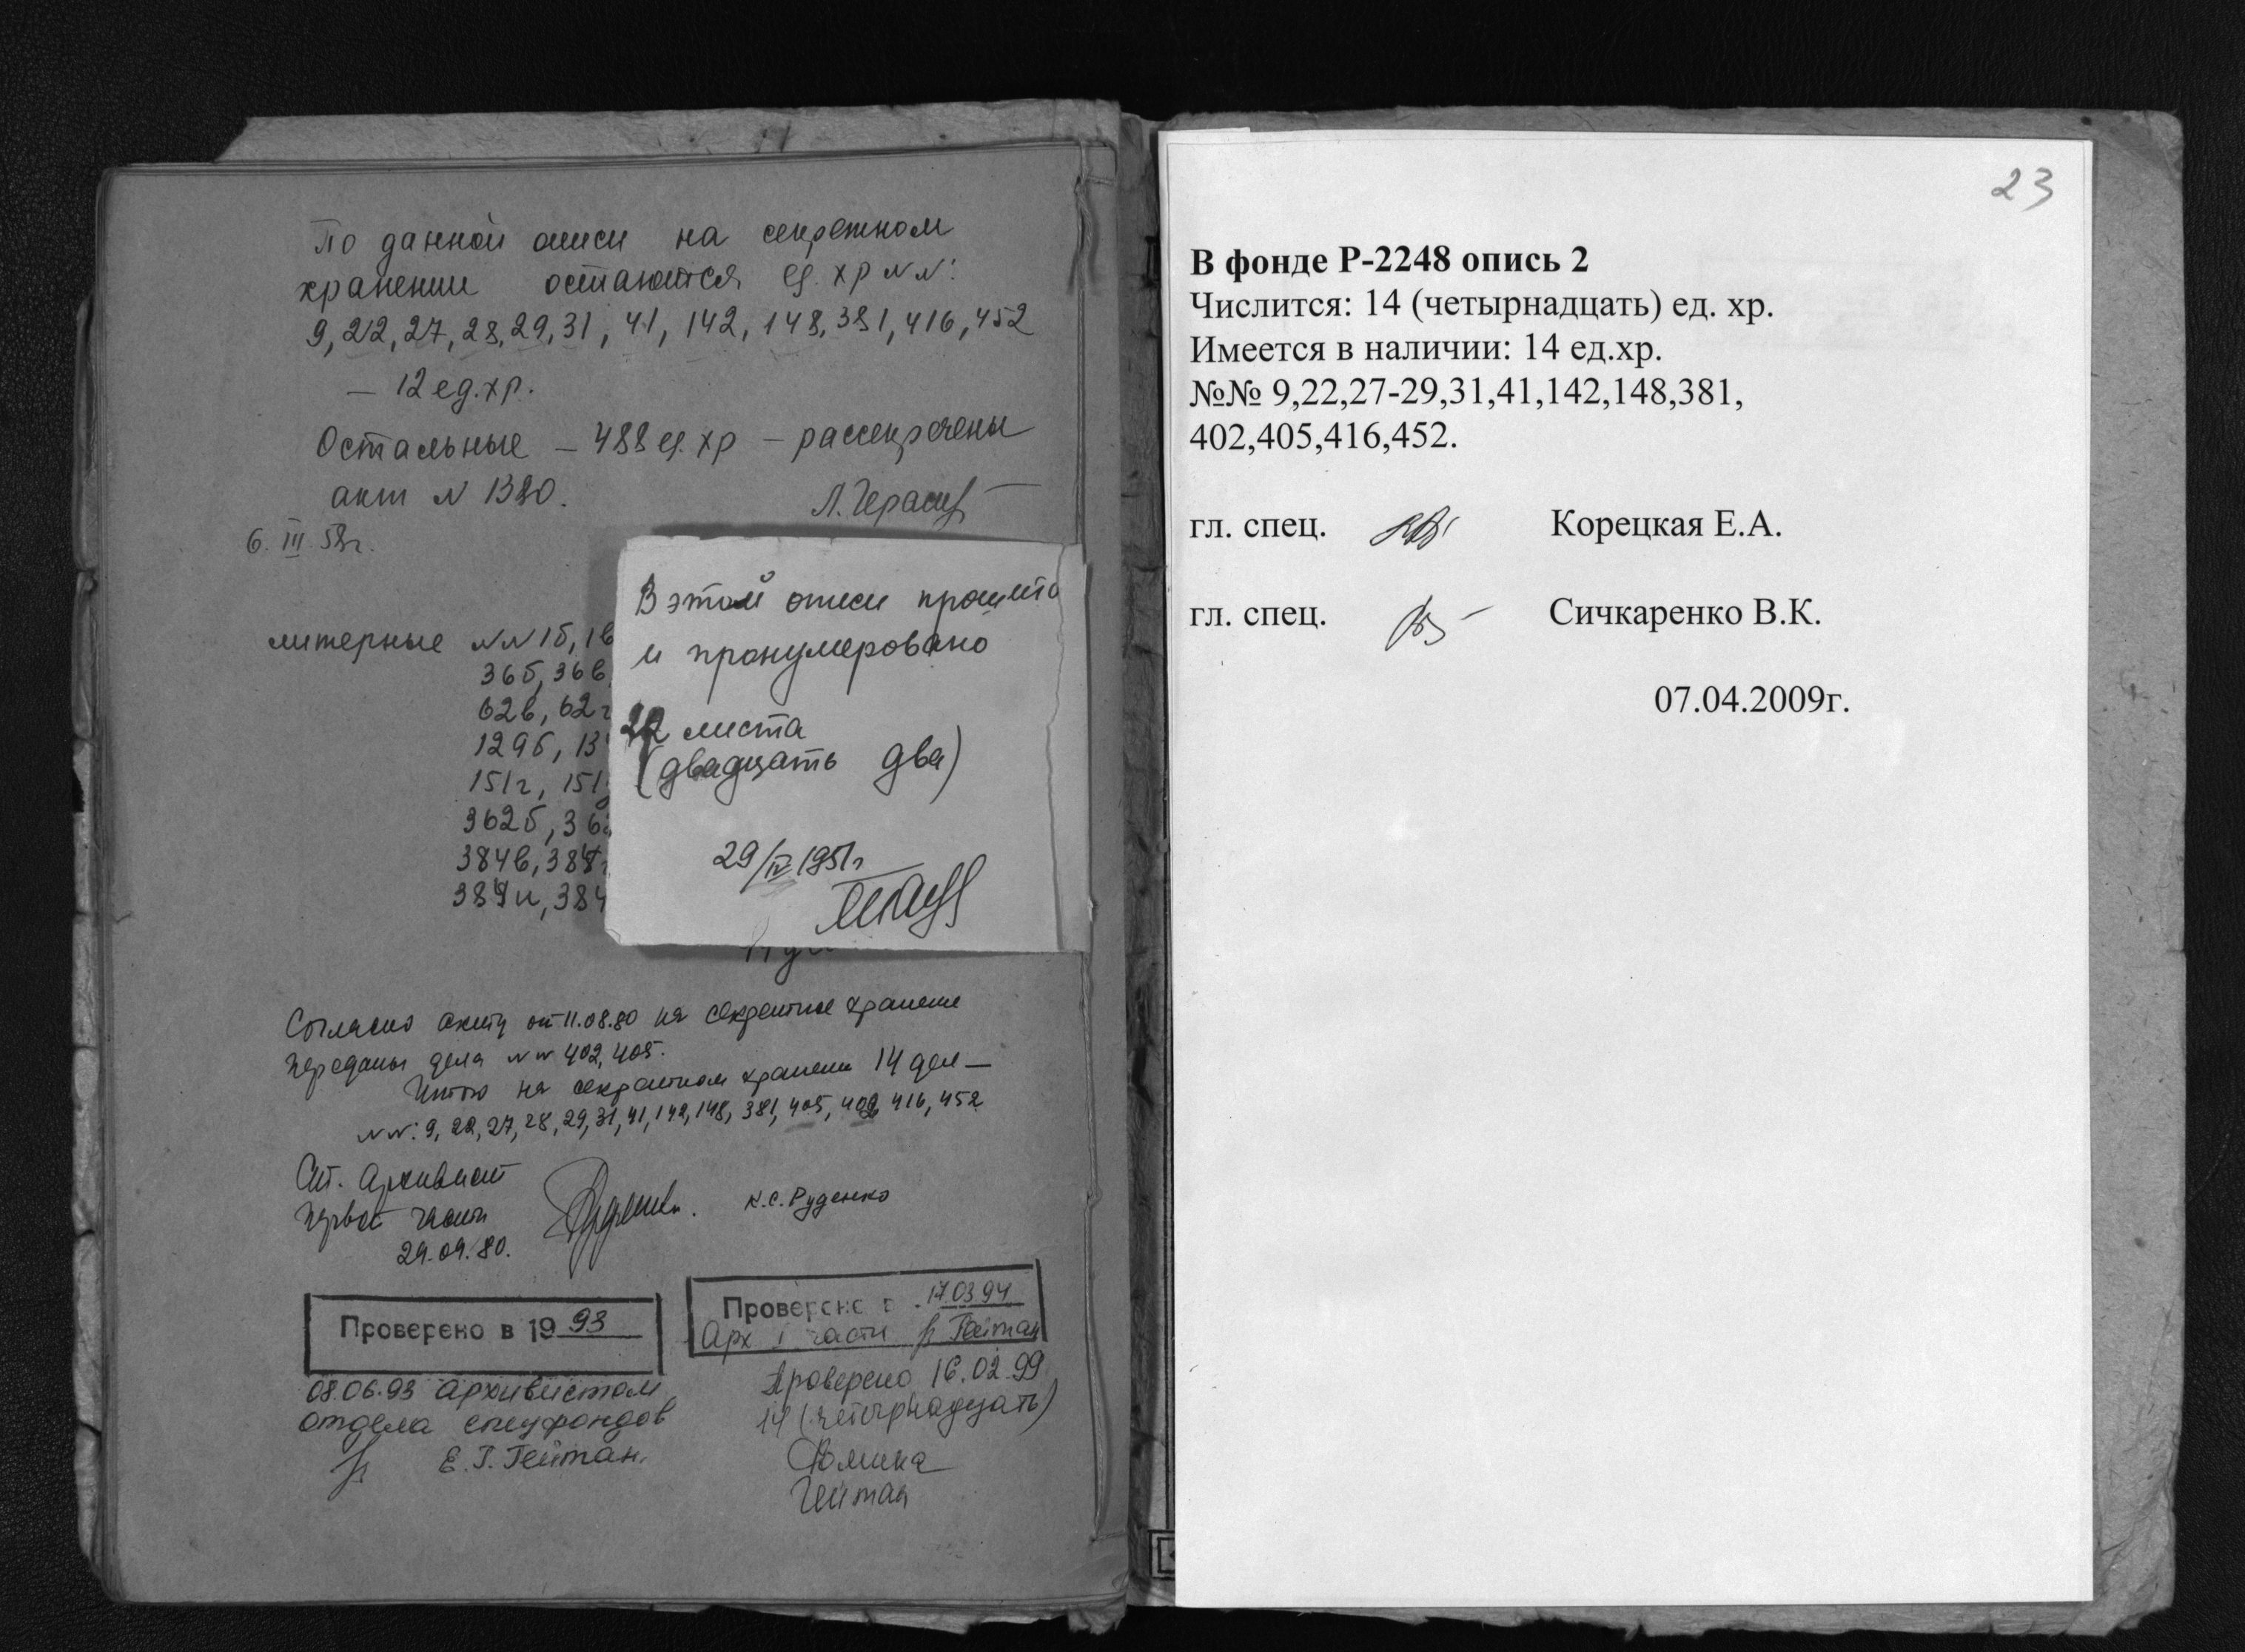 По данной описи на секретном
хранении остаются ед. хр NN:
9, 22, 27, 28, 29, 31, 41, 142, 148, 381, 416, 452
– 12 ед. хр.
Остальные – 488 ед. хр – рассекречены
акт N 1380.
6. III 58г.
литерные NN 1б, 1в
36б, 36в,
62в, 62г
129б, 13
151г, 151
362б, 36
384в, 384г
384и, 384
В этой описи прошито
и пронумеровано
22 листа
(двадцать два)
29/IV 1951г
Согласно акту от 11.08.80 на секретное хранение
переданы дела NN 402, 405.
Итого на секретном хранении 14 дел –
NN: 9, 22, 27, 28, 29, 31, 41, 142, 148, 381, 405, 402, 416, 452
Ст. Архивист
первой части К.С. Руденко
29.09.80.
Проверено в 1993
08.06.93 архивистом
отдела спецфондов
Е. Г. Гейтан.
Проверено в 17.03.94
Арх I части Гейтан
Проверено 16.02.99
14 (четырнадцать)
Гейтан
23
В фонде Р-2248 опись 2
Числится: 14 (четырнадцать) ед. хр.
Имеется в наличии: 14 ед.хр.
№№ 9,22,27-29,31,41,142,148,381,
402,405,416,452.
гл. спец. Корецкая Е.А.
гл. спец. Сичкаренко В.К.
07.04.2009г.